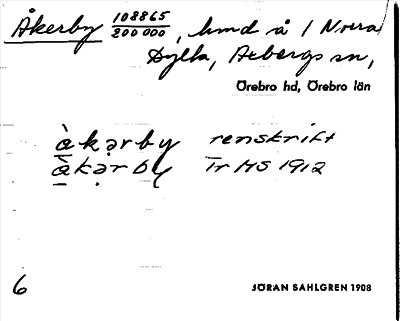 Åkerby 108865/200000, hmd å 1 Norra
Dylta, Axbergs sn,
Örebro hd, Örebro län
àkәrby renskrift
àkәrby Tr MS 1912
6 JÖRAN SAHLGREN 1908